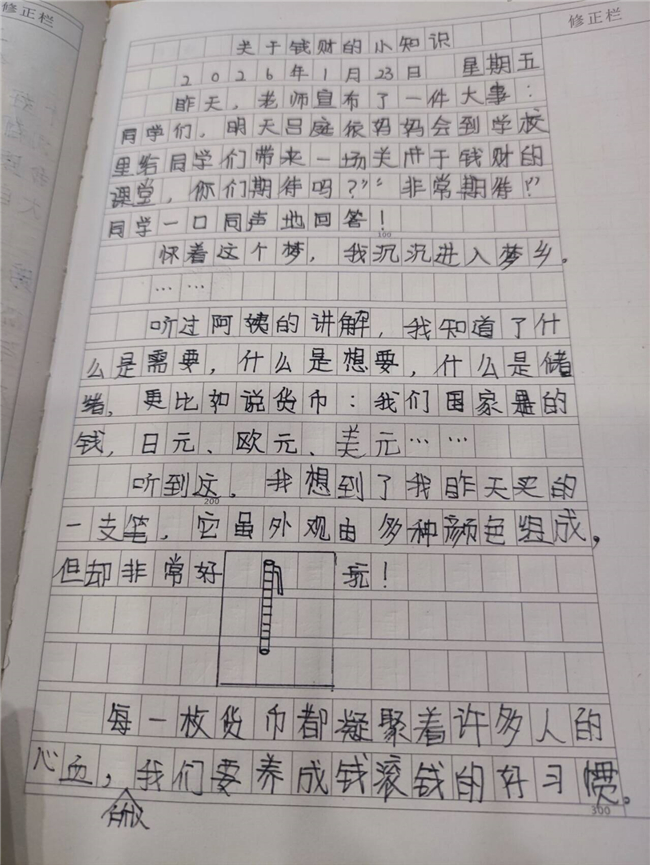 修正栏
修正栏
关于钱财的小知识
2026年1月23日 星期五
昨天，老师宣布了一件大事：
同学们，明天吕庭依妈妈会到学校
里给同学们带来一场关于钱财的
课堂，你们期待吗？”“非常期待！”
同学一口同声地回答！
100
怀着这个梦，我沉沉进入梦乡。
……
听过阿姨的讲解，我知道了什
么是需要，什么是想要，什么是储
绪，更比如说货币：我们国家的
钱，日元、欧元、美元……
听到这，我想到了我昨天买的
200
一支笔，它虽外观由多种颜色组成，
但却非常好玩！
每一枚货币都凝聚着许多人的
心血，我们要养成钱滚钱的好习惯。
所以
300